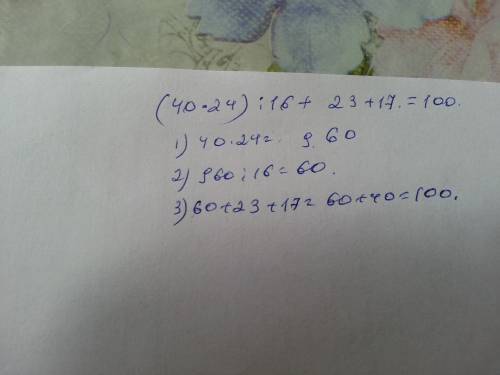 (40·24):16+ 23+17.=100.
1) 40·24=. 9.60
2) 960:16=60.
3) 60+23+17= 60+40=100.